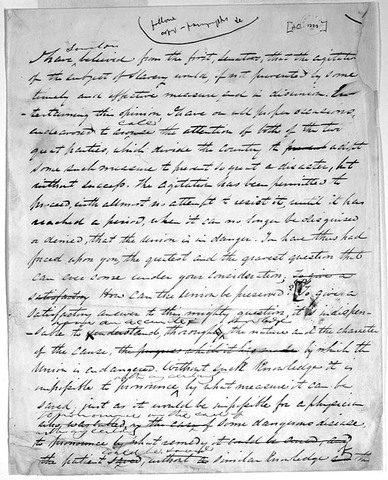 follow
copy - paragraphs &c
Senators
I have, believed from the first, Senators, that the agitation
of the subject of slavery would, if not prevented by some
timely and effective measure end in disunion. En-
-tertaining this opinion, I have on all proper occasions,
endeavored to arouse the attention of both of the two
great parties, which divide the country, to adopt
some such measure to prevent so great a disaster, but
without success. The agitation has been permitted to
proceed, with almost no attempt to resist it, until it has
reached a period, when it can no longer be disguised
or denied, that the Union is in danger. You have thus had
forced upon you, the greatest and the gravest question that
can ever come under your consideration;
satisfactory How can the Union be preserved? To give a
satisfactory answer to this mighty question, it is indispen-
-sable to the nature and the character
of the cause, by which the
Union is endangered. Without such knowledge it is
impossible to pronounce, by what measure it can be
saved, just as it would be impossible for a physician
some dangerous disease
to pronounce by what remedy it could be cured,
the patient without similar knowledge the